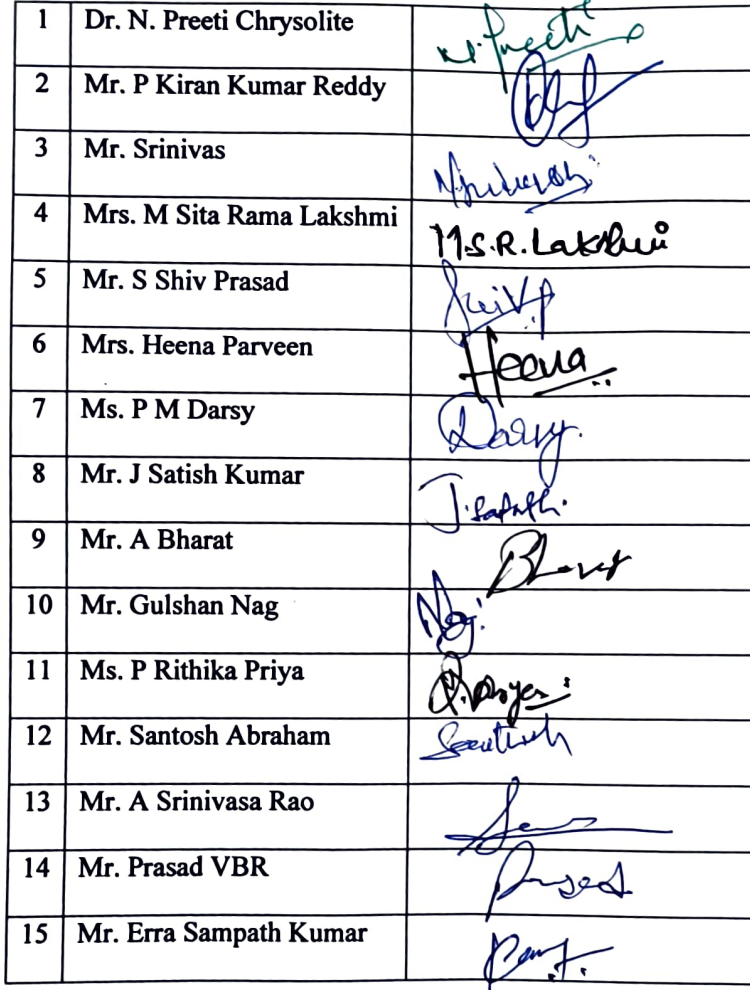 1 Dr. N. Preeti Chrysolite N. Preeti
2 Mr. P Kiran Kumar Reddy
3 Mr. Srinivas
4 Mrs. M Sita Rama Lakshmi M.S.R. Lakshmi
5 Mr. S Shiv Prasad
6 Mrs. Heena Parveen Heena
7 Ms. P M Darsy Darsy
8 Mr. J Satish Kumar J. Satish
9 Mr. A Bharat Bharat
10 Mr. Gulshan Nag Nag
11 Ms. P Rithika Priya
12 Mr. Santosh Abraham Santosh
13 Mr. A Srinivasa Rao
14 Mr. Prasad VBR Prasad
15 Mr. Erra Sampath Kumar